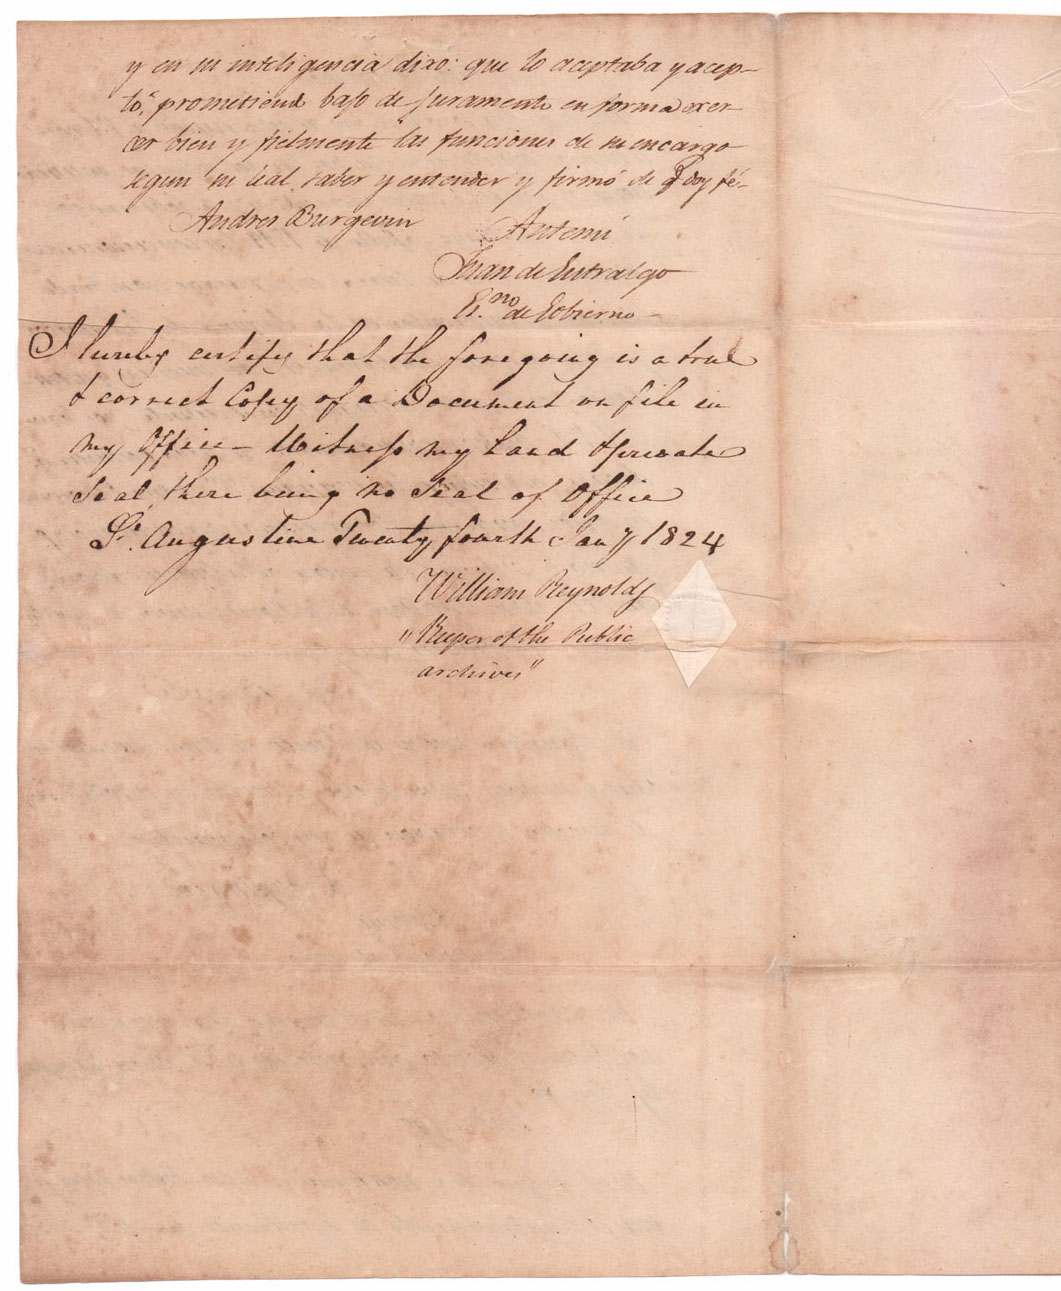 y en su inteligencia dixo: que lo aceptaba y acep-
tó, prometiend bajo de juramento en forma exer-
cer bien y fielmente las funciones de su encargo
segun su leal saber y entender y firmó de q.e doy fé-
Andres Burgevin Antemi
Juan de Entralgo
Es.no de Gobierno-
I hereby certify that the foregoing is a true
& correct Copy of a Document on file in
my Office - Witness my hand & private
Seal there being no Seal of Office
St. Augustine Twenty fourth Jany 1824
William Reynolds
"Keeper of the Public
archives"